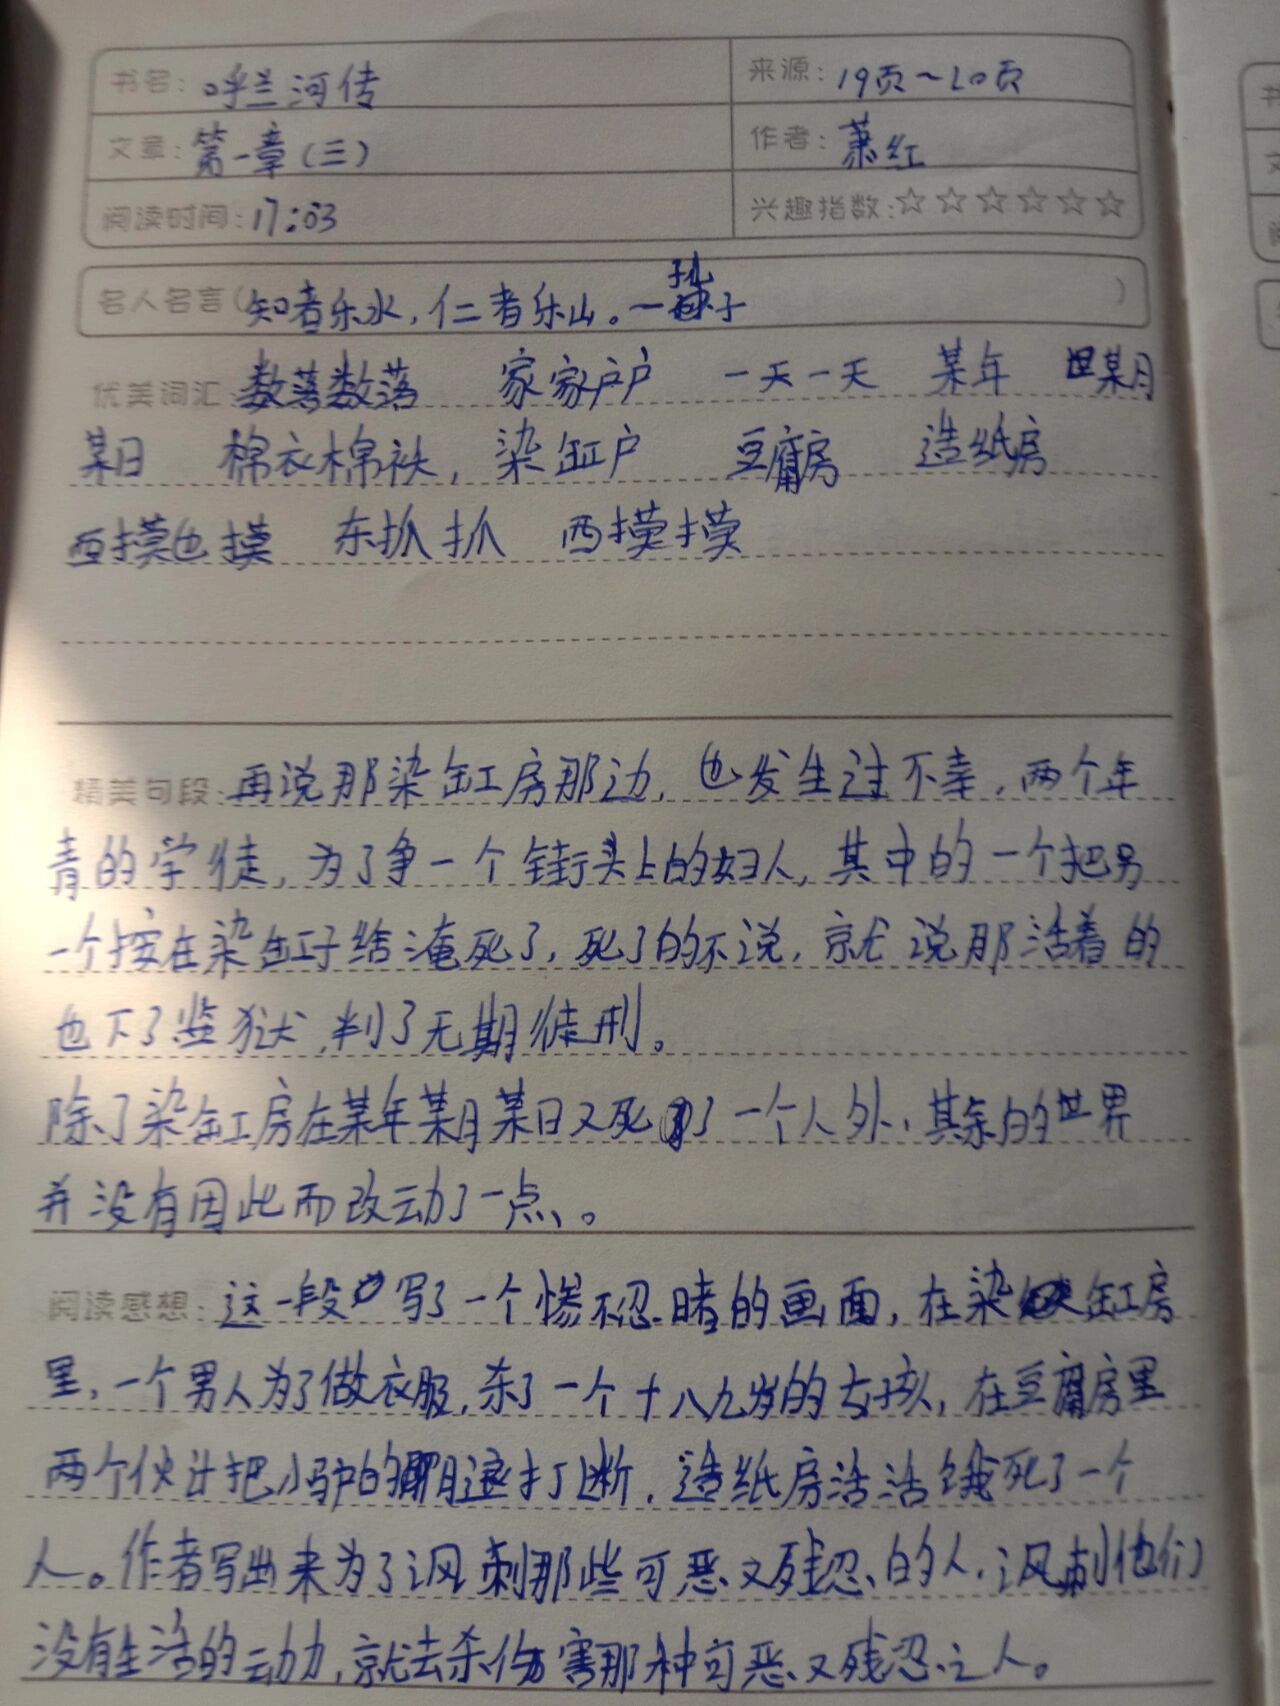 书名: 呼兰河传 来源: 19页~20页
文章: 第一章(三) 作者: 萧红
阅读时间: 17:03 兴趣指数:☆☆☆☆☆☆
名人名言(知者乐水,仁者乐山。一孔子)
优美词汇: 数落数落 家家户户 一天一天 某年 某月
某日 棉衣棉袄, 染缸户 豆腐房 造纸房
西摸也摸 东扒扒 西摸摸
精美句段: 再说那染缸房那边,也发生过不幸,两个年
青的学徒,为了争一个街头上的妇人,其中的一个把另
一个按在染缸子给淹死了,死了的不说,就说那活着的
也下了监狱,判了无期徒刑。
除了染缸房在某年某月某日又死了一个人外,其余的世界
并没有因此而改动了一点。
阅读感想: 这一段写了一个惨不忍睹的画面,在染缸房
里,一个男人为了做衣服,杀了一个十八九岁的女孩,在豆腐房里
两个伙计把小驴的腿打断,造纸房活活饿死了一个
人。作者写出来为了讽刺那些可恶又残忍的人,讽刺他们
没有生活的动力,就去杀伤害那种可恶又残忍之人。